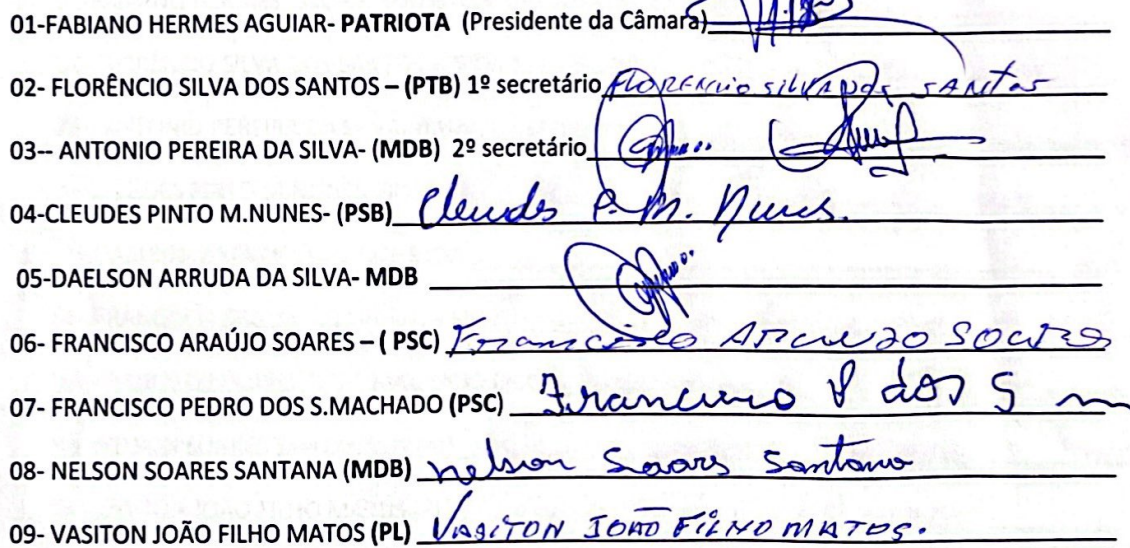 01-FABIANO HERMES AGUIAR- PATRIOTA (Presidente da Câmara)
02- FLORÊNCIO SILVA DOS SANTOS – (PTB) 1º secretário FLORENCIO SILVA DOS SANTOS
03-- ANTONIO PEREIRA DA SILVA- (MDB) 2º secretário
04-CLEUDES PINTO M.NUNES- (PSB) Cleudes P. M. Nunes.
05-DAELSON ARRUDA DA SILVA- MDB
06- FRANCISCO ARAÚJO SOARES – ( PSC) Francisco Araujo Soares
07- FRANCISCO PEDRO DOS S.MACHADO (PSC) Francisco P dos S m
08- NELSON SOARES SANTANA (MDB) nelson Soares Santana
09- VASITON JOÃO FILHO MATOS (PL) VASITON JOÃO FILHO MATOS.